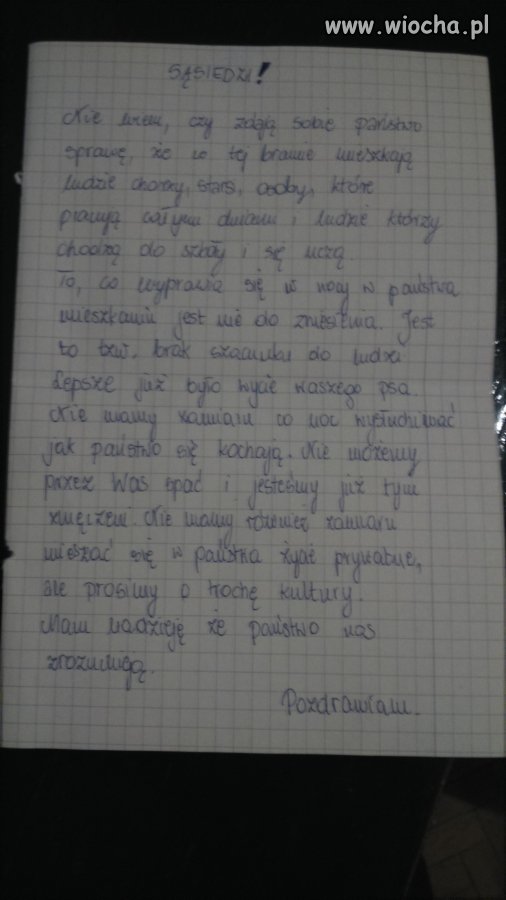 www.wiocha.pl
SĄSIEDZI!
Nie wiem, czy zdają sobie państwo
sprawę, że w tej bramie mieszkają
ludzie chorzy, starsi, osoby, które
pracują całymi dniami i ludzie którzy
chodzą do szkoły i się uczą.
To, co wyprawia się w nocy w państwa
mieszkaniu jest nie do zniesienia. Jest
to tzw. brak szacunku do ludzi
Lepsze już było wycie waszego psa.
Nie mamy zamiaru co noc wysłuchiwać
jak państwo się kochają. Nie możemy
przez Was spać i jesteśmy już tym
zmęczeni. Nie mamy również zamiaru
mieszać się w państwa życie prywatne,
ale prosimy o trochę kultury.
Mam nadzieję że państwo nas
zrozumieją.
Pozdrawiam.